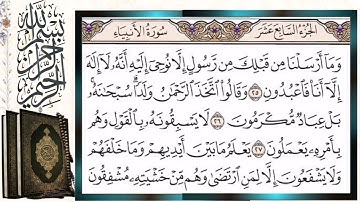 الجزء السابع عشر
سورة الأنبياء
وَمَا أَرْسَلْنَا مِن قَبْلِكَ مِن رَّسُولٍ إِلَّا نُوحِي إِلَيْهِ أَنَّهُ لَا إِلَٰهَ
إِلَّا أَنَا فَاعْبُدُونِ ٢٥ وَقَالُوا اتَّخَذَ الرَّحْمَٰنُ وَلَدًا سُبْحَانَهُ
بَلْ عِبَادٌ مُّكْرَمُونَ ٢٦ لَا يَسْبِقُونَهُ بِالْقَوْلِ وَهُم
بِأَمْرِهِ يَعْمَلُونَ ٢٧ يَعْلَمُ مَا بَيْنَ أَيْدِيهِمْ وَمَا خَلْفَهُمْ
وَلَا يَشْفَعُونَ إِلَّا لِمَنِ ارْتَضَىٰ وَهُم مِّنْ خَشْيَتِهِ مُشْفِقُونَ
بسم الله الرحمن الرحيم